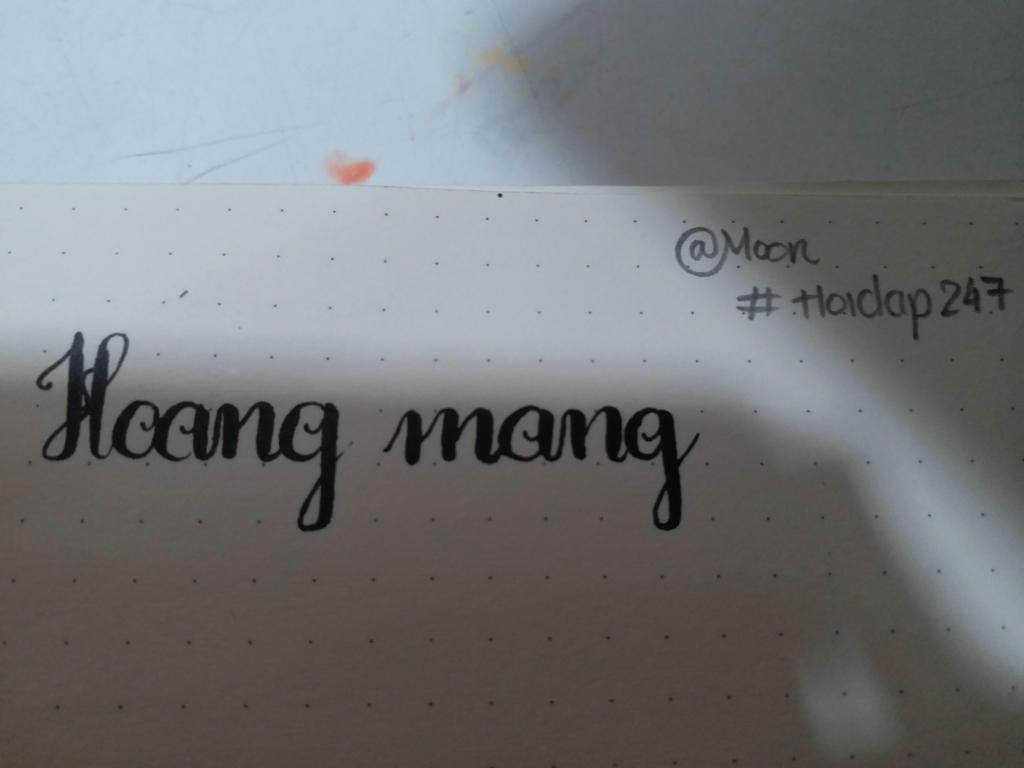 @Moon
# Hoidap247
Hoang mang